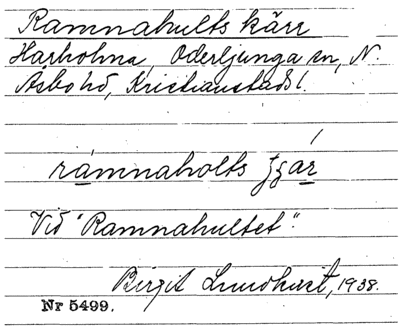 Ramnahults kärr
Harholma, Oderljunga sn, N.
Åsbo hd, Kristianstads l.
ràmnaholts ʃʃár
Vid "Ramnahultet".
Birgit Lundquist, 1938.
Nr 5499.